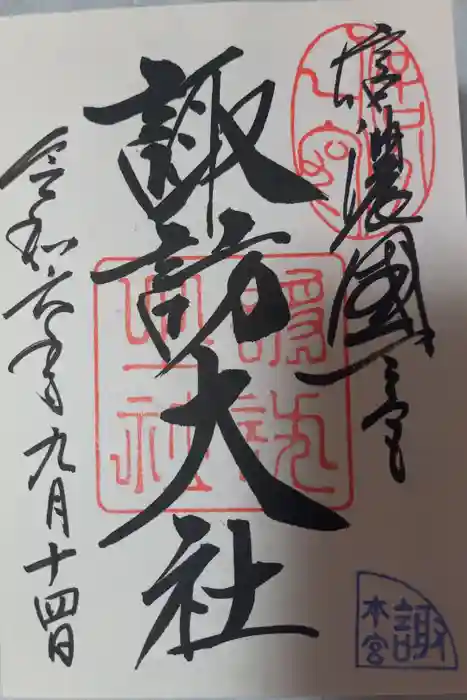 信濃國一之宮
諏訪大社
令和六年九月十四日
諏
本宮